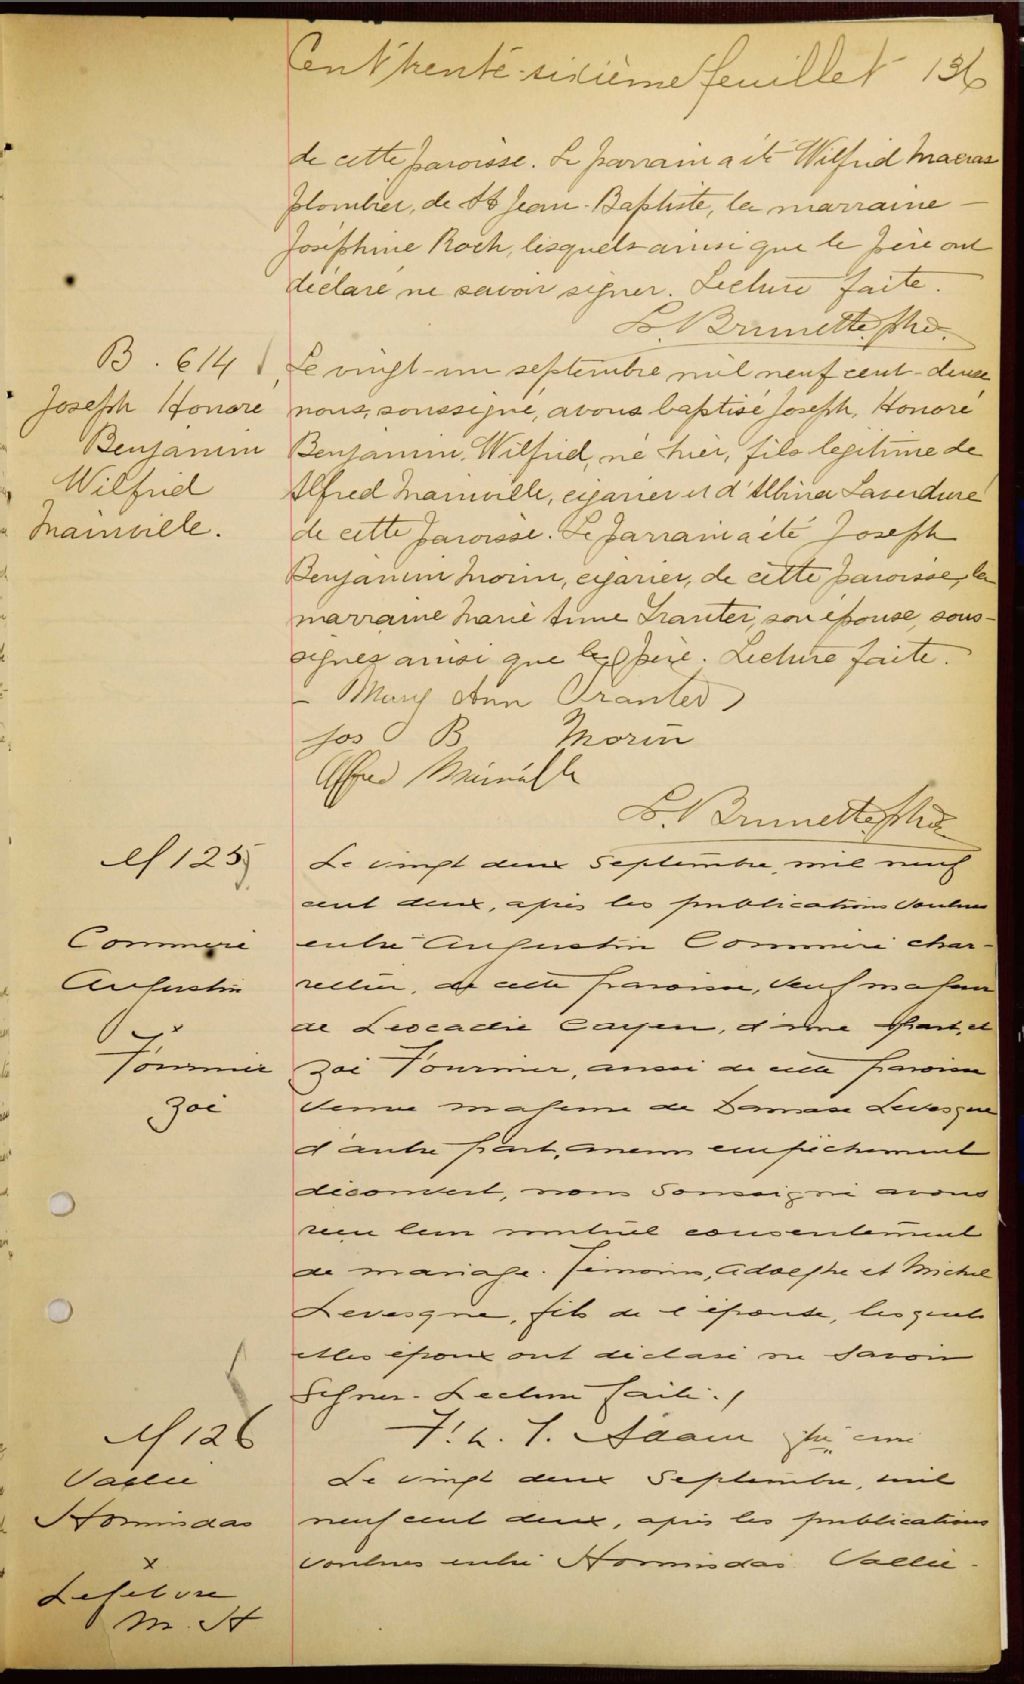 Cent trente-sixième feuillet 136
de cette paroisse. Le parrain a été Wilfrid
plombier, de St Jean-Baptiste, la marraine
Joséphine Roch, lesquels ainsi que le père ont
déclaré ne savoir signer. Lecture faite.
L. Brunette, ptre.
B. 614
Joseph Honoré
Benjamin
Wilfrid
Mainville.
Le vingt-un septembre mil neuf cent-deux
nous, soussigné, avons baptisé Joseph, Honoré
Benjamin, Wilfrid, né hier, fils légitime de
Alfred Mainville, cigarier et d'Albina Laverdure
de cette paroisse. Le parrain a été Joseph
Benjamin Morin, cigarier, de cette paroisse, la
marraine Marie Anne Tranter, son épouse, sous-
signés ainsi que le père. Lecture faite.
Mary Ann Tranter
Jos B Morin
Alfred Mainville
L. Brunette, ptre
M 125
Commeré
Augustin
x
Fournier
Zoé
Le vingt deux Septembre, mil neuf
cent deux, après les publications voulues
entre Augustin Commeré char-
retier, de cette paroisse, veuf majeur
de Léocadie Cayen, d'une part, et
Zoé Fournier, aussi de cette paroisse
veuve majeure de Damase Levesque
d'autre part, aucun empêchement
découvert, nous soussigné avons
reçu leur mutuel consentement
de mariage. Témoins, Adolphe et Michel
Levesque, fils de l'épouse, lesquels
et les époux ont déclaré ne savoir
signer. Lecture faite.
F. L. T. Adam ptre curé
M 126
Vallée
Hormisdas
x
Lefebvre
M. H
Le vingt deux Septembre, mil
neuf cent deux, après les publications
voulues entre Hormisdas Vallée